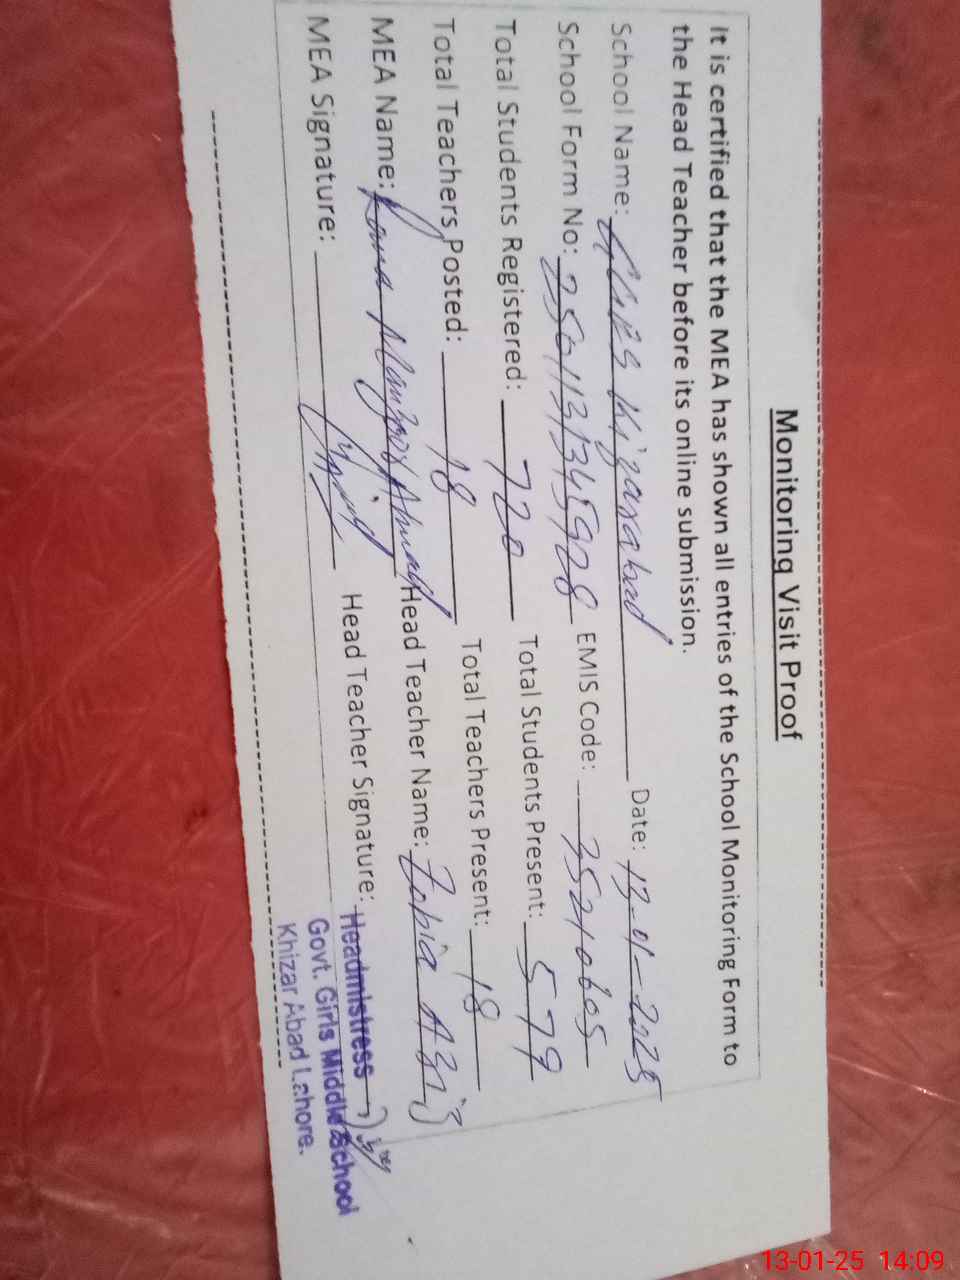 Monitoring Visit Proof
It is certified that the MEA has shown all entries of the School Monitoring Form to
the Head Teacher before its online submission.
School Name: GGES Khizarabad Date: 13-01-2025
School Form No: 2501131345928 EMIS Code: 35210605
Total Students Registered: 720 Total Students Present: 579
Total Teachers Posted: 18 Total Teachers Present: 18
MEA Name: Rana Manzoor Ahmad Head Teacher Name: Zobia Aziz
MEA Signature: Head Teacher Signature:
Headmistress
Govt. Girls Middle School
Khizar Abad Lahore.
13-01-25 14:09